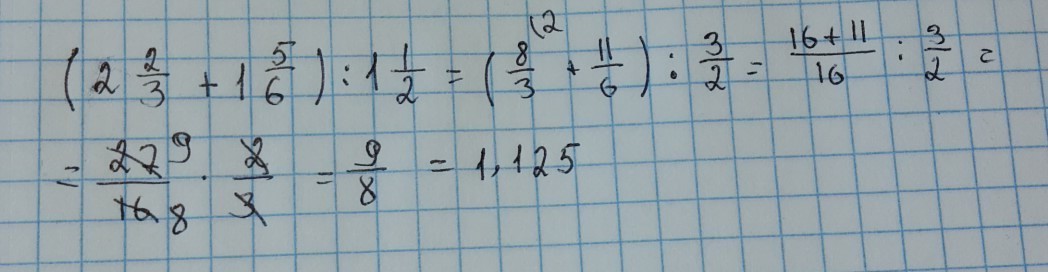 (2 2/3 + 1 5/6) : 1 1/2 = (8/3 (2 + 11/6) : 3/2 = (16 + 11)/16 : 3/2 =
= 27/16 9 8 · 2/3 = 9/8 = 1,125